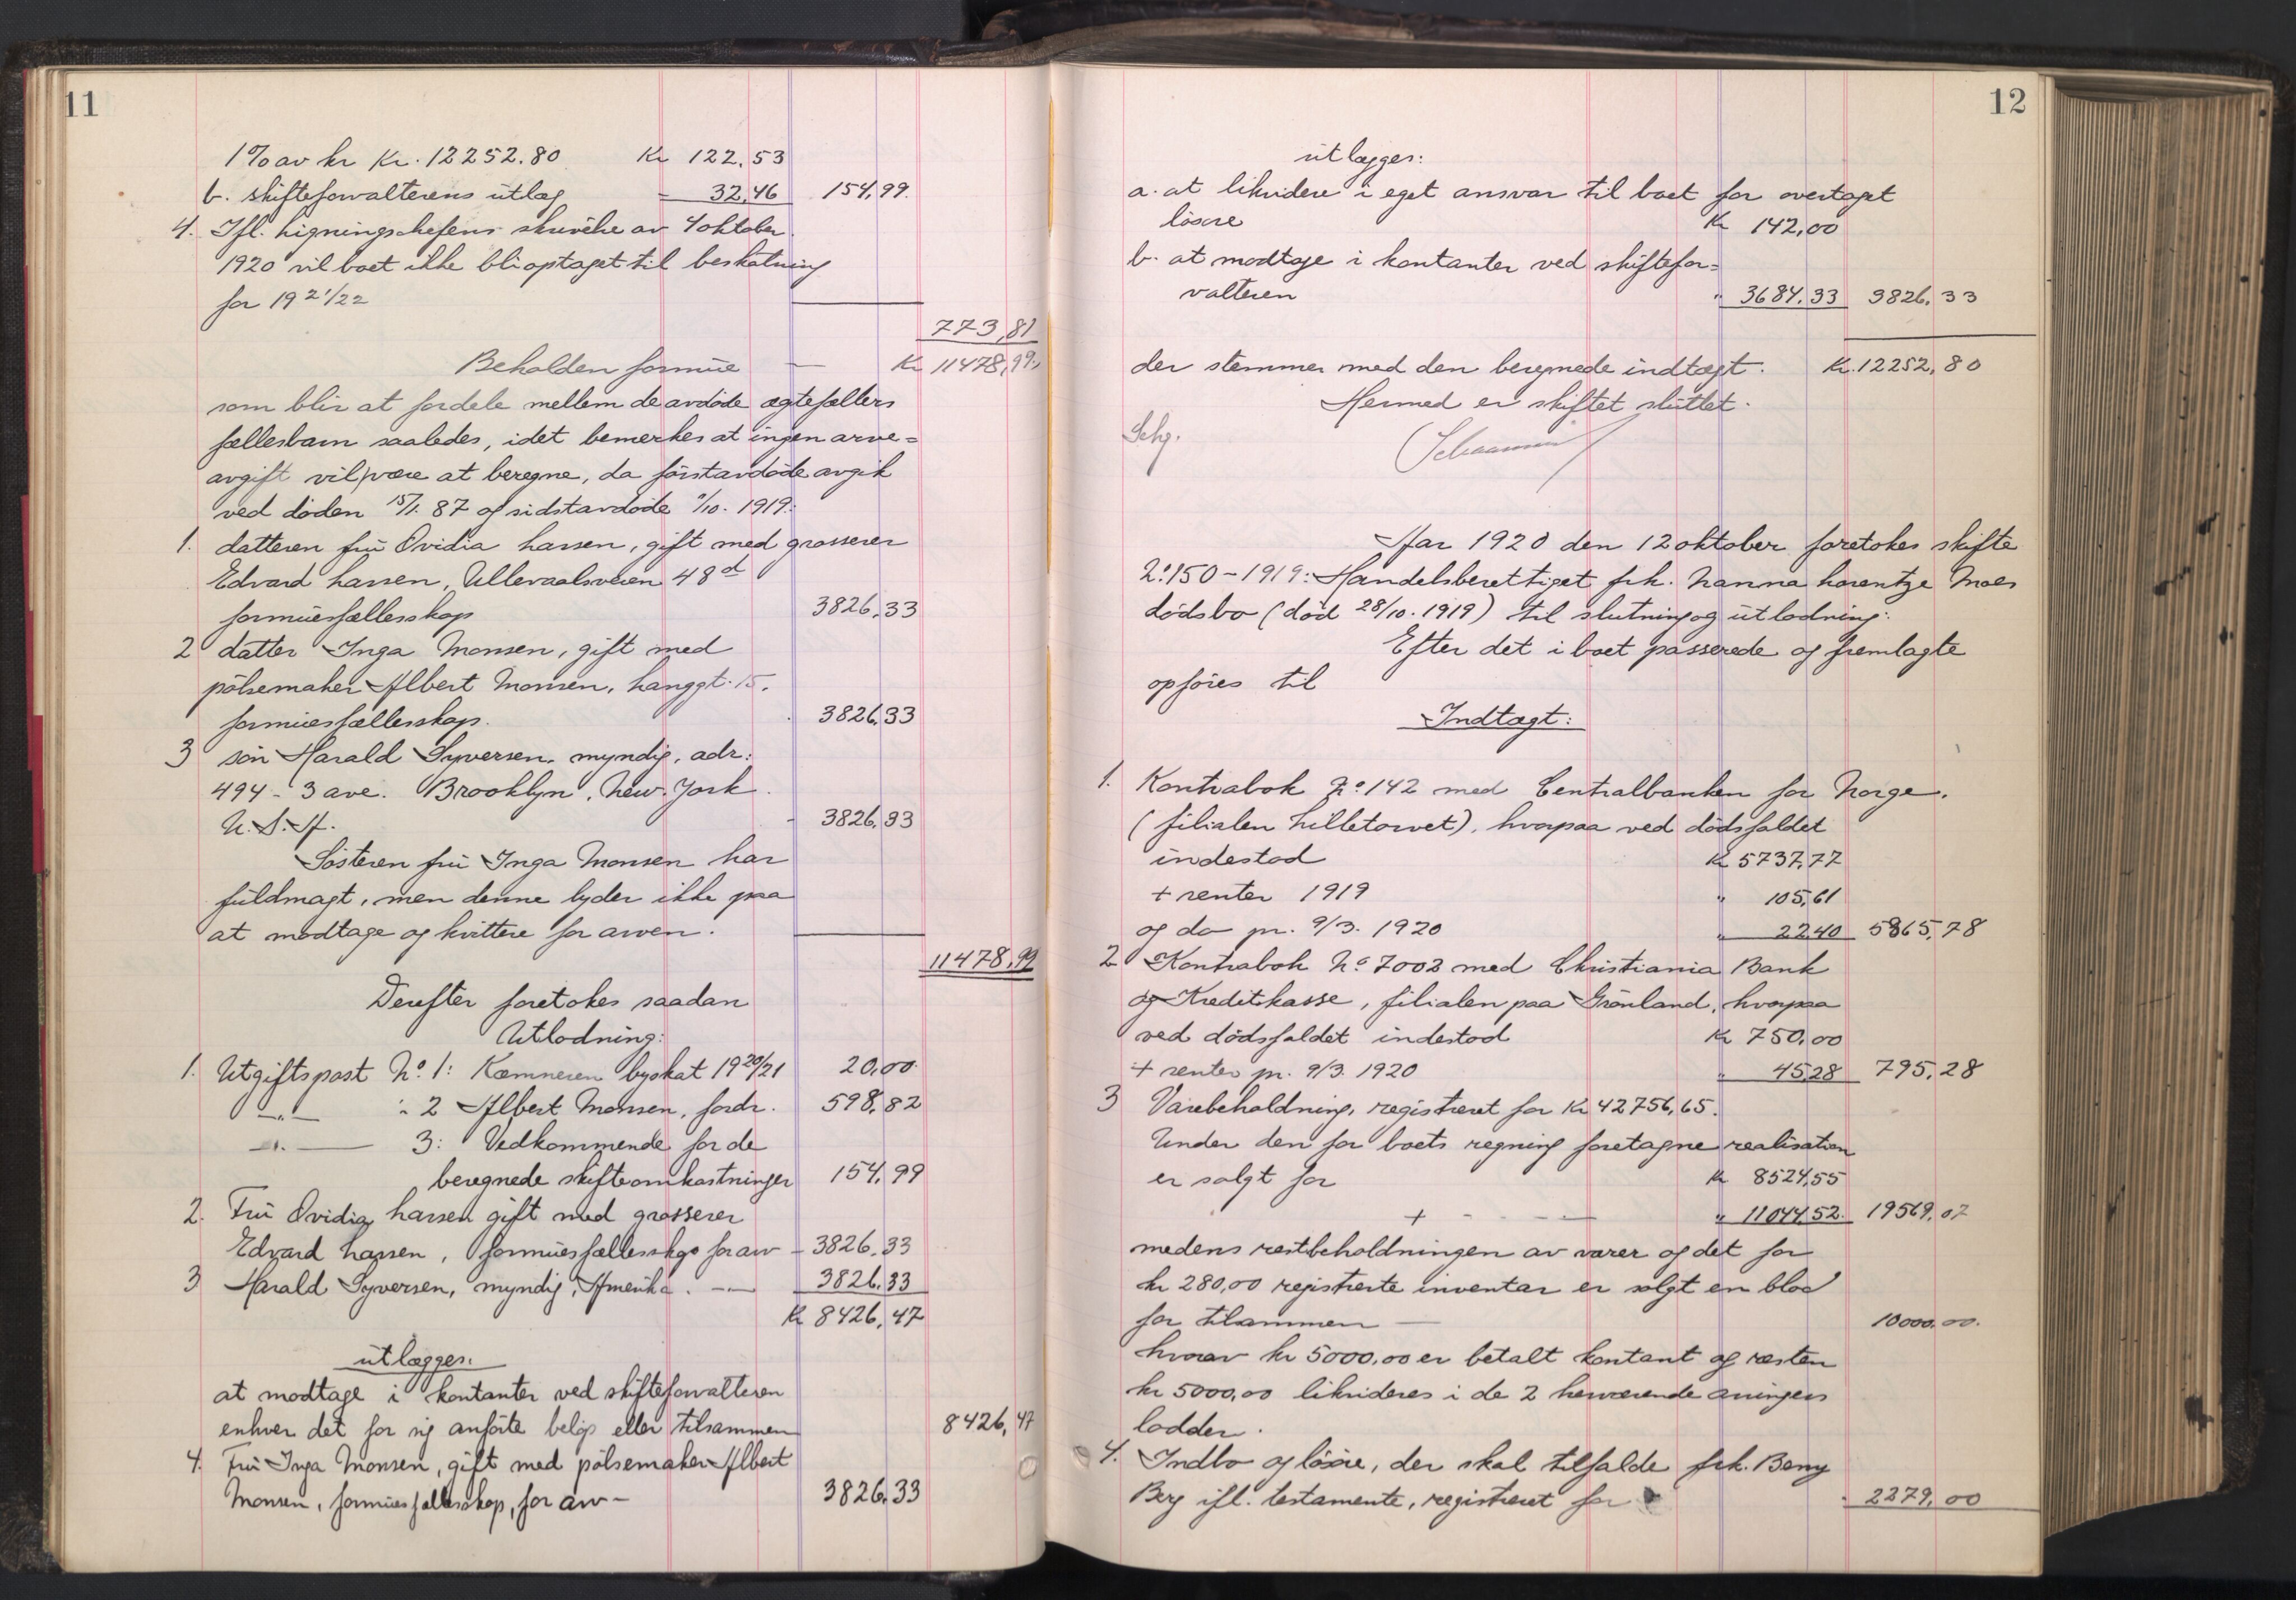 11
1% av kr Kr. 12252.80 Kr 122.53
b. skifteforvalterens utlæg " 32,46 154,99.
4. Ifl. Ligningschefens skrivelse av 4 oktober
1920 vil boet ikke bli optaget til beskatning
for 1921/22
773,81
Beholden formue — Kr 11478,99,
som blir at fordele mellem de avdøde ægtefællers
fællesbarn saaledes, idet bemerkes at ingen arve=
avgift vil være at beregne, da førstavdøde avgik
ved døden 15/1. 87 og sidstavdøde /10. 1919:
1. datteren fru Ovidia Larsen, gift med grosserer
Edvard Larsen, Ullevaalsveien 48d
formuesfællesskap 3826,33
2 datter Inga Monsen, gift med
pølsemaker Albert Monsen, Langgt. 15.
formuesfællesskap. 3826,33
3 søn Harald Syversen, myndig, adr:
494 - 3 ave. Brooklyn, New. York.
U. S. A. - 3826,33
Søsteren fru Inga Monsen har
fuldmagt, men denne lyder ikke paa
at modtage og kvittere for arven.
11478,99
Derefter foretokes saadan
Utlodning:
1. Utgiftspost No. 1: Kæmneren byskat 1920/21 20,00
—"— : 2 Albert Monsen, fordr. 598,82
—"— 3: Vedkommende for de
beregnede skifteomkostninger 154,99
2. Fru Ovidia Larsen gift med grosserer
Edvard Larsen, formuesfællesskap for arv - 3826,33
3 Harald Syversen, myndig, Amerika. —"— 3826,33
Kr 8426,47
utlægges:
at modtage i kontanter ved skifteforvalteren
enhver det for sig anførte beløp eller tilsammen 8426,47
4. Fru Inga Monsen, gift med pølsemaker Albert
Monsen, formuesfællesskap, for arv - 3826,33
12
utlægges:
a. at likvidere i eget ansvar til boet for overtaget
løsøre Kr 142,00
b. at modtage i kontanter ved skiftefor=
valteren " 3684,33 3826,33
der stemmer med den beregnede indtægt. Kr. 12252,80
Hermed er skiftet sluttet.
Aar 1920 den 12 oktober foretokes skifte
No. 150 - 1919: Handelsberettiget frk. Nanna Lorentze Moes
dødsbo (død 28/10. 1919) til slutning og utlodning:
Efter det i boet passerede og fremlagte
opføres til
Indtægt:
1. Kontrabok No. 142 med Centralbanken for Norge.
(filialen Lilletorvet), hvorpaa ved dødsfaldet
indestod Kr 5737,77
+ renter 1919 " 105,61
og do pr. 9/3. 1920 " 22,40 5865,78
2 Kontrabok No. 7002 med Christiania Bank
og Kreditkasse, filialen paa Grønland, hvorpaa
ved dødsfaldet indestod Kr 750,00
+ renter pr. 9/3. 1920 " 45,28 795,28
3 Varebeholdning, registreret for Kr 42756,65.
Under den for boets regning foretagne realisation
er solgt for Kr 8524,55
+ - - — " 11044,52. 19569,07
medens restbeholdningen av varer og det for
kr 280,00 registrerte inventar er solgt en bloc
for tilsammen — 10000,00.
hvorav kr 5000,00 er betalt kontant og resten
kr 5000,00 likvideres i de 2 herværende arvingers
lodder.
4. Indbo og løsøre, der skal tilfalde frk. Beny
Berg ifl. testamente, registreret for - 2279,00